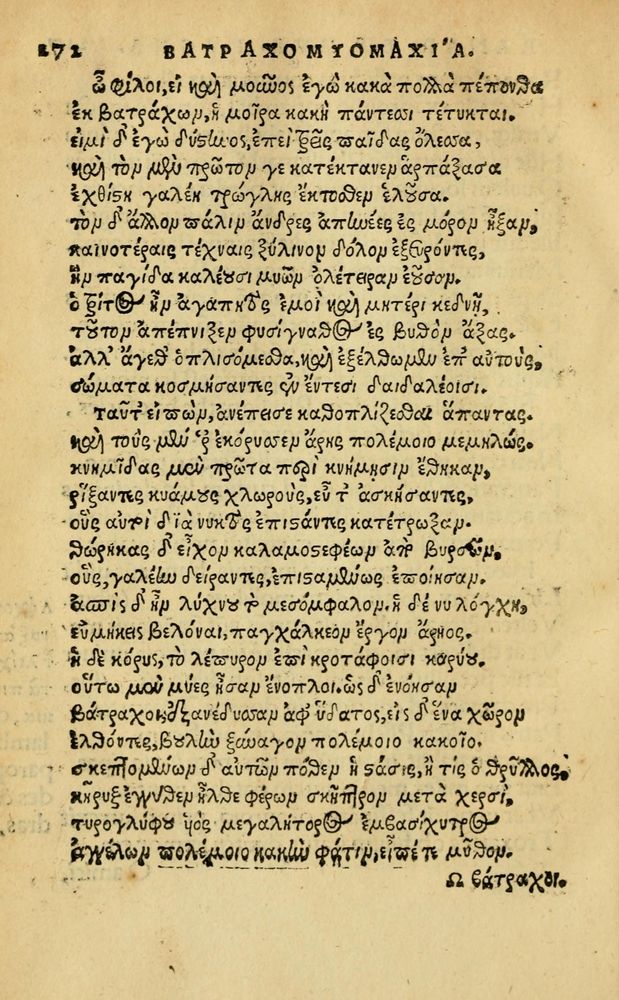 272 ΒΑΤΡΑΧΟΜΥΟΜΑΧΙ´Α.
ὦ φίλοι, εἰ καὶ μοῦνος ἐγὼ κακὰ πολλὰ πέπονθα
ἐκ βατράχων, ἡ μοῖρα κακὴ πάντεσσι τέτυκται.
εἰμὶ δ' ἐγὼ δύστηνος, ἐπεὶ τρεῖς παῖδας ὄλεσσα,
καὶ τὸν μὲν πρῶτον γε κατέκτανεν ἁρπάξασα
ἐχθίστη γαλέη τρώγλης ἔκτοθεν ἑλοῦσα.
τὸν δ' ἄλλον πάλιν ἄνδρες ἀπηνέες ἐς μόρον ἦξαν,
καινοτέραις τέχναις ξύλινον δόλον ἐξευρόντες,
ἣν παγίδα καλέουσι μυῶν ὀλέτειραν ἐοῦσαν.
ὁ τρίτος ἦν ἀγαπητὸς ἐμοὶ καὶ μητέρι κεδνῇ,
τοῦτον ἀπέπνιξεν φυσίγναθος ἐς βυθὸν ἄξας.
ἀλλ' ἄγεθ' ὁπλισόμεσθα, καὶ ἐξέλθωμεν ἐπ' αὐτοὺς,
σώματα κοσμήσαντες ἐν ἔντεσι δαιδαλέοισι.
ταῦτ' εἰπὼν, ἀνέπεισε καθοπλίζεσθαι ἅπαντας.
καὶ τοὺς μέν ῥ' ἐκόρυσσεν ἄρης πολέμοιο μεμηλώς.
κνημῖδας μὲν πρῶτα περὶ κνήμησιν ἔθηκαν,
ῥίξαντες κυάμους χλωροὺς, εὖ τ' ἀσκήσαντες,
οὓς αὐτοὶ διὰ νυκτὸς ἐπιστάντες κατέτρωξαν.
θώρηκας δ' εἶχον καλαμοστεφέων ἀπὸ βυρσῶν,
οὓς, γαλέην δείραντες, ἐπισταμένως ἐποίησαν.
ἀσπὶς δ' ἦν λύχνου τὸ μεσόμφαλον. ἡ δέ νυ λόγχη,
εὐμήκεις βελόναι, παγχάλκεον ἔργον ἄρηος.
ἡ δὲ κόρυς, τὸ λέπυρον ἐπὶ κροτάφοισι καρύου.
οὕτω μὲν μύες ἦσαν ἔνοπλοι. ὡς δ' ἐνόησαν
βάτραχοι, ἐξανέδυσαν ἀφ' ὕδατος, εἰς δ' ἕνα χῶρον
ἐλθόντες, βουλὴν ξύναγον πολέμοιο κακοῖο.
σκεπτομένων δ' αὐτῶν πόθεν ἡ στάσις, ἢ τίς ὁ θρύλλος,
κῆρυξ ἐγγύθεν ἦλθε φέρων σκῆπτρον μετὰ χερσὶ,
τυρογλύφου υἱὸς μεγαλήτορος ἐμβασίχυτρος
ἀγγέλων πολέμοιο κακὴν φάτιν, εἶπέ τε μῦθον.
Ω βάτραχοι.